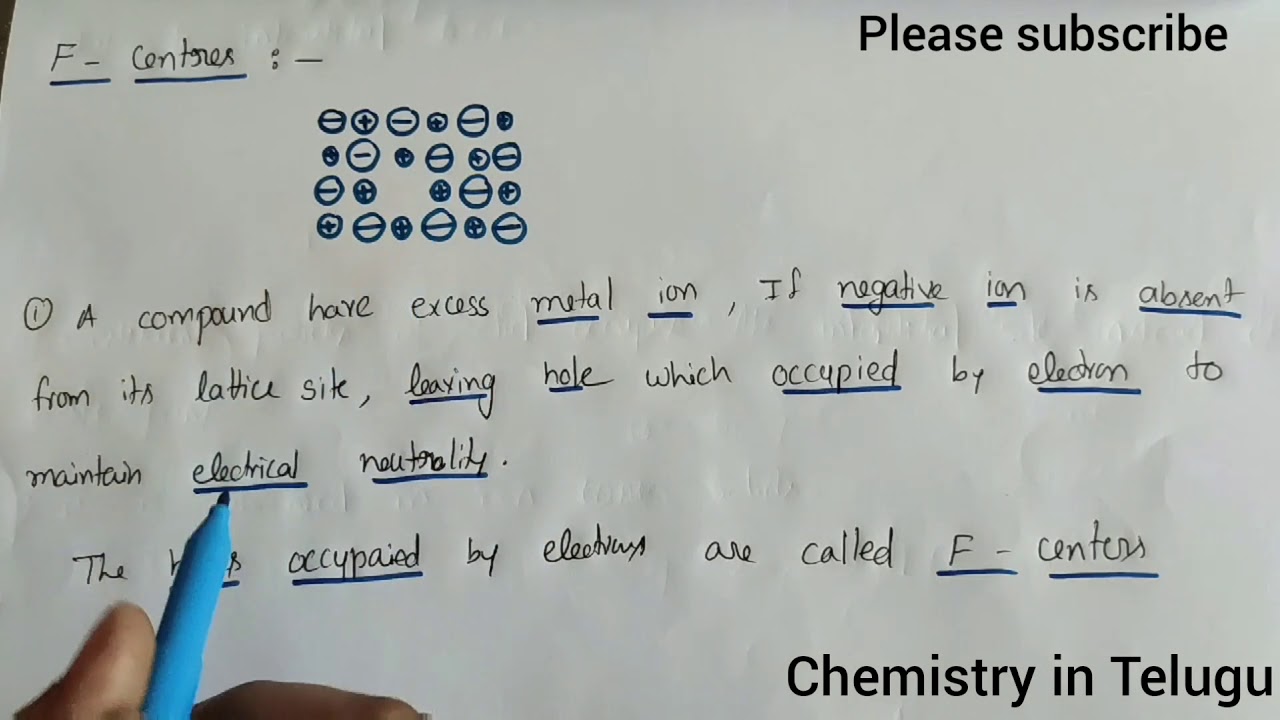 Please subscribe
F - Centres : -
① A compound have excess metal ion, If negative ion is absent
from its lattice site, leaving hole which occupied by electron to
maintain electrical neutrality.
The occypaied by electrons are called F - centers
Chemistry in Telugu